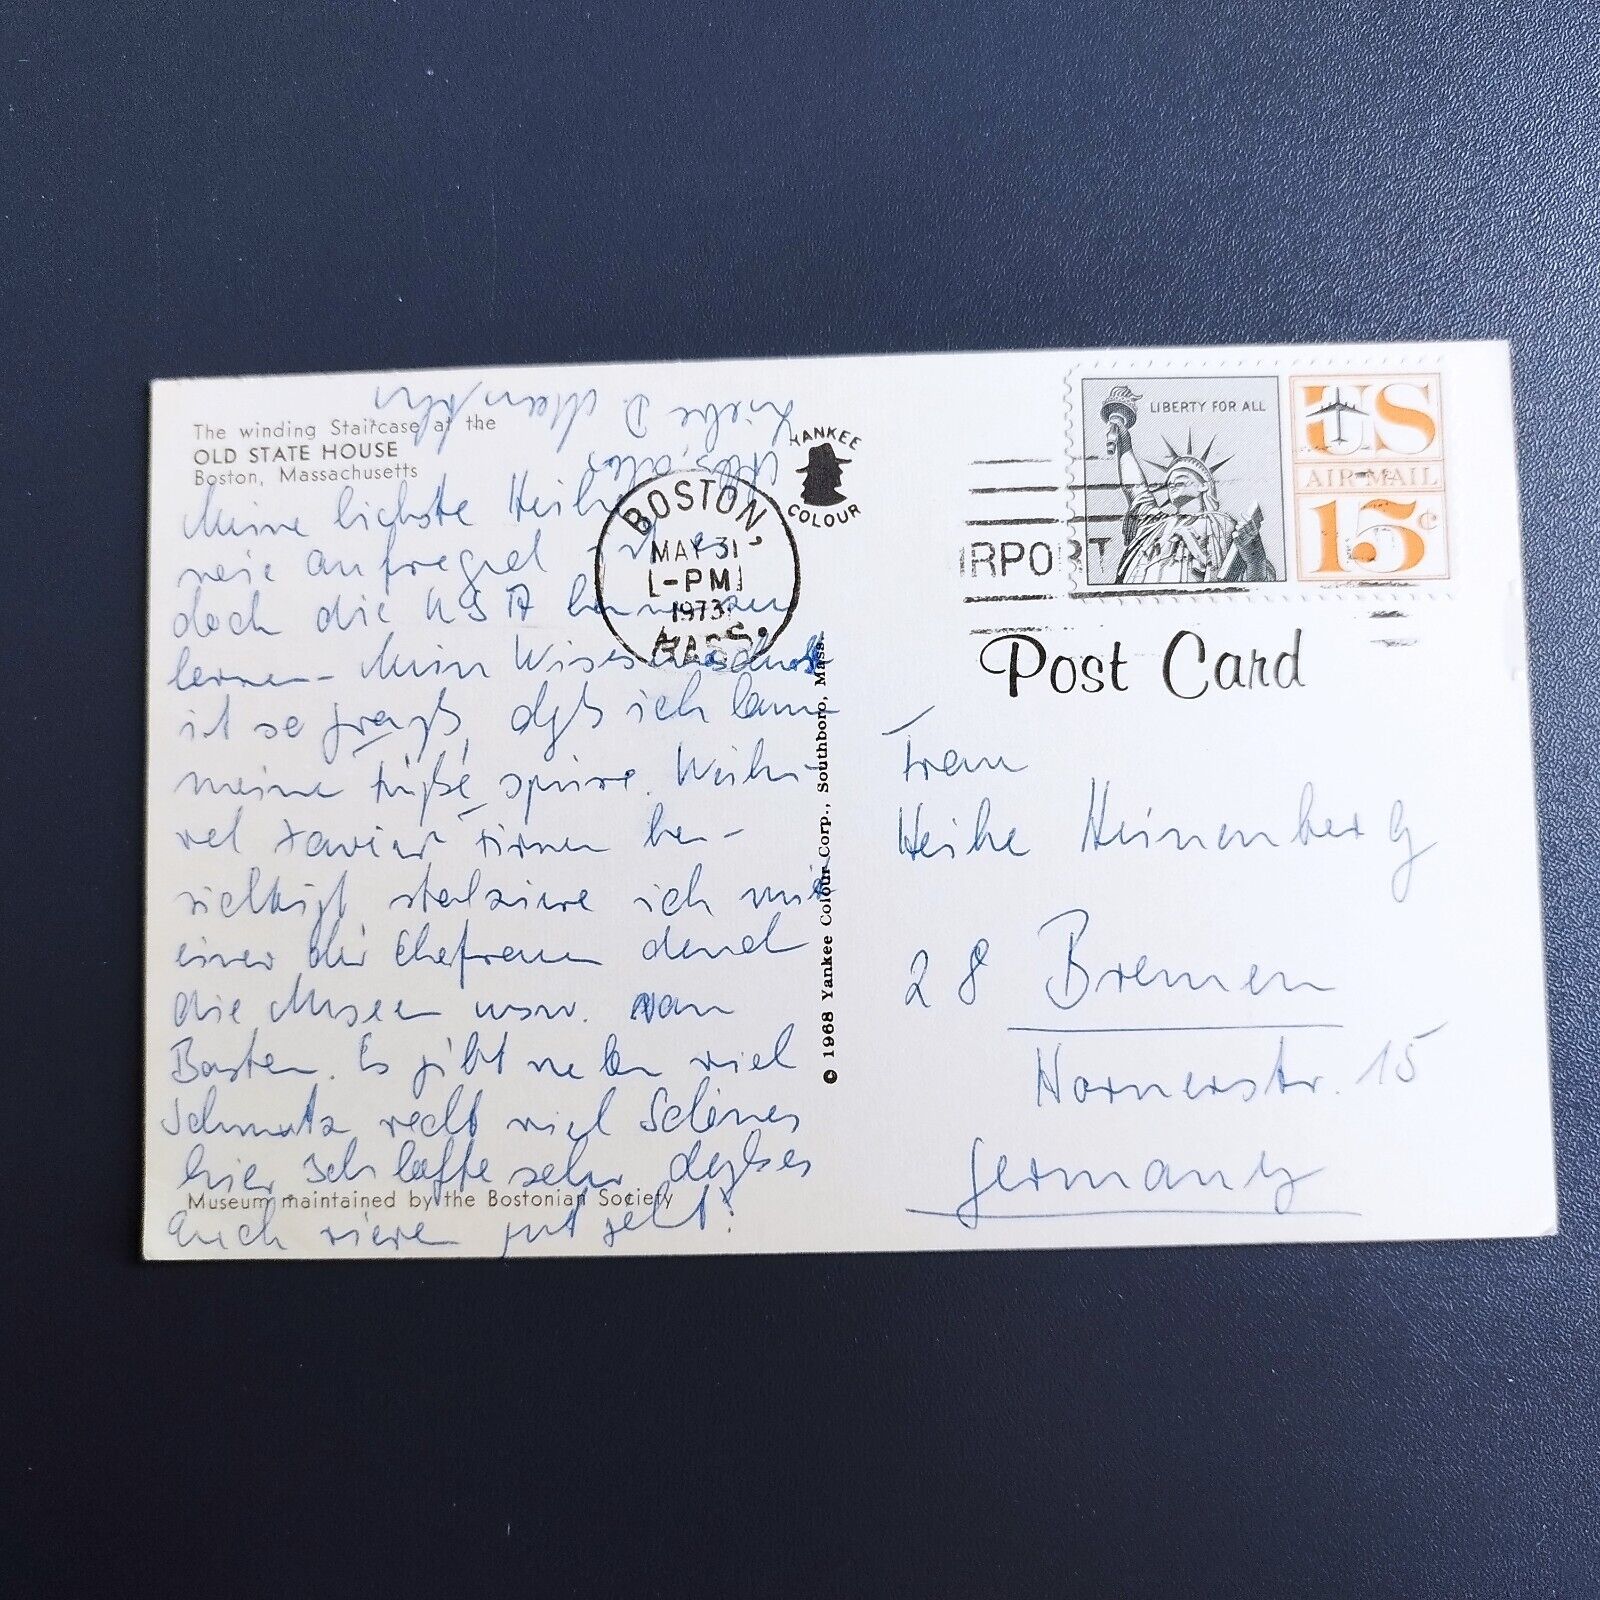 The winding Staircase at the
OLD STATE HOUSE
Boston, Massachusetts
Meine liebste Heike
wie aufregend
doch die USA kennenzu
lernen - Mein Wissensdurst
ist so groß, daß ich kaum
meine Füße spüre.
viel Xavier Firmen be-
sichtigt, stolziere ich mit
einer der Ehefrauen durch
die Museen usw. von
Boston. Es gibt neben viel
Schmutz recht viel Schönes
hier Ich hoffe sehr daß es
Euch gut geht!
Museum maintained by the Bostonian Society
Alles, alles
Liebe D.
YANKEE
COLOUR
BOSTON
MAY 31
PM
1973
MASS.
© 1968 Yankee Colour Corp., Southboro, Mass.
IRPORT
LIBERTY FOR ALL
US
AIR MAIL
15¢
Post Card
Frau
Heike Heinenberg
28 Bremen
Hornerstr. 15
Germany